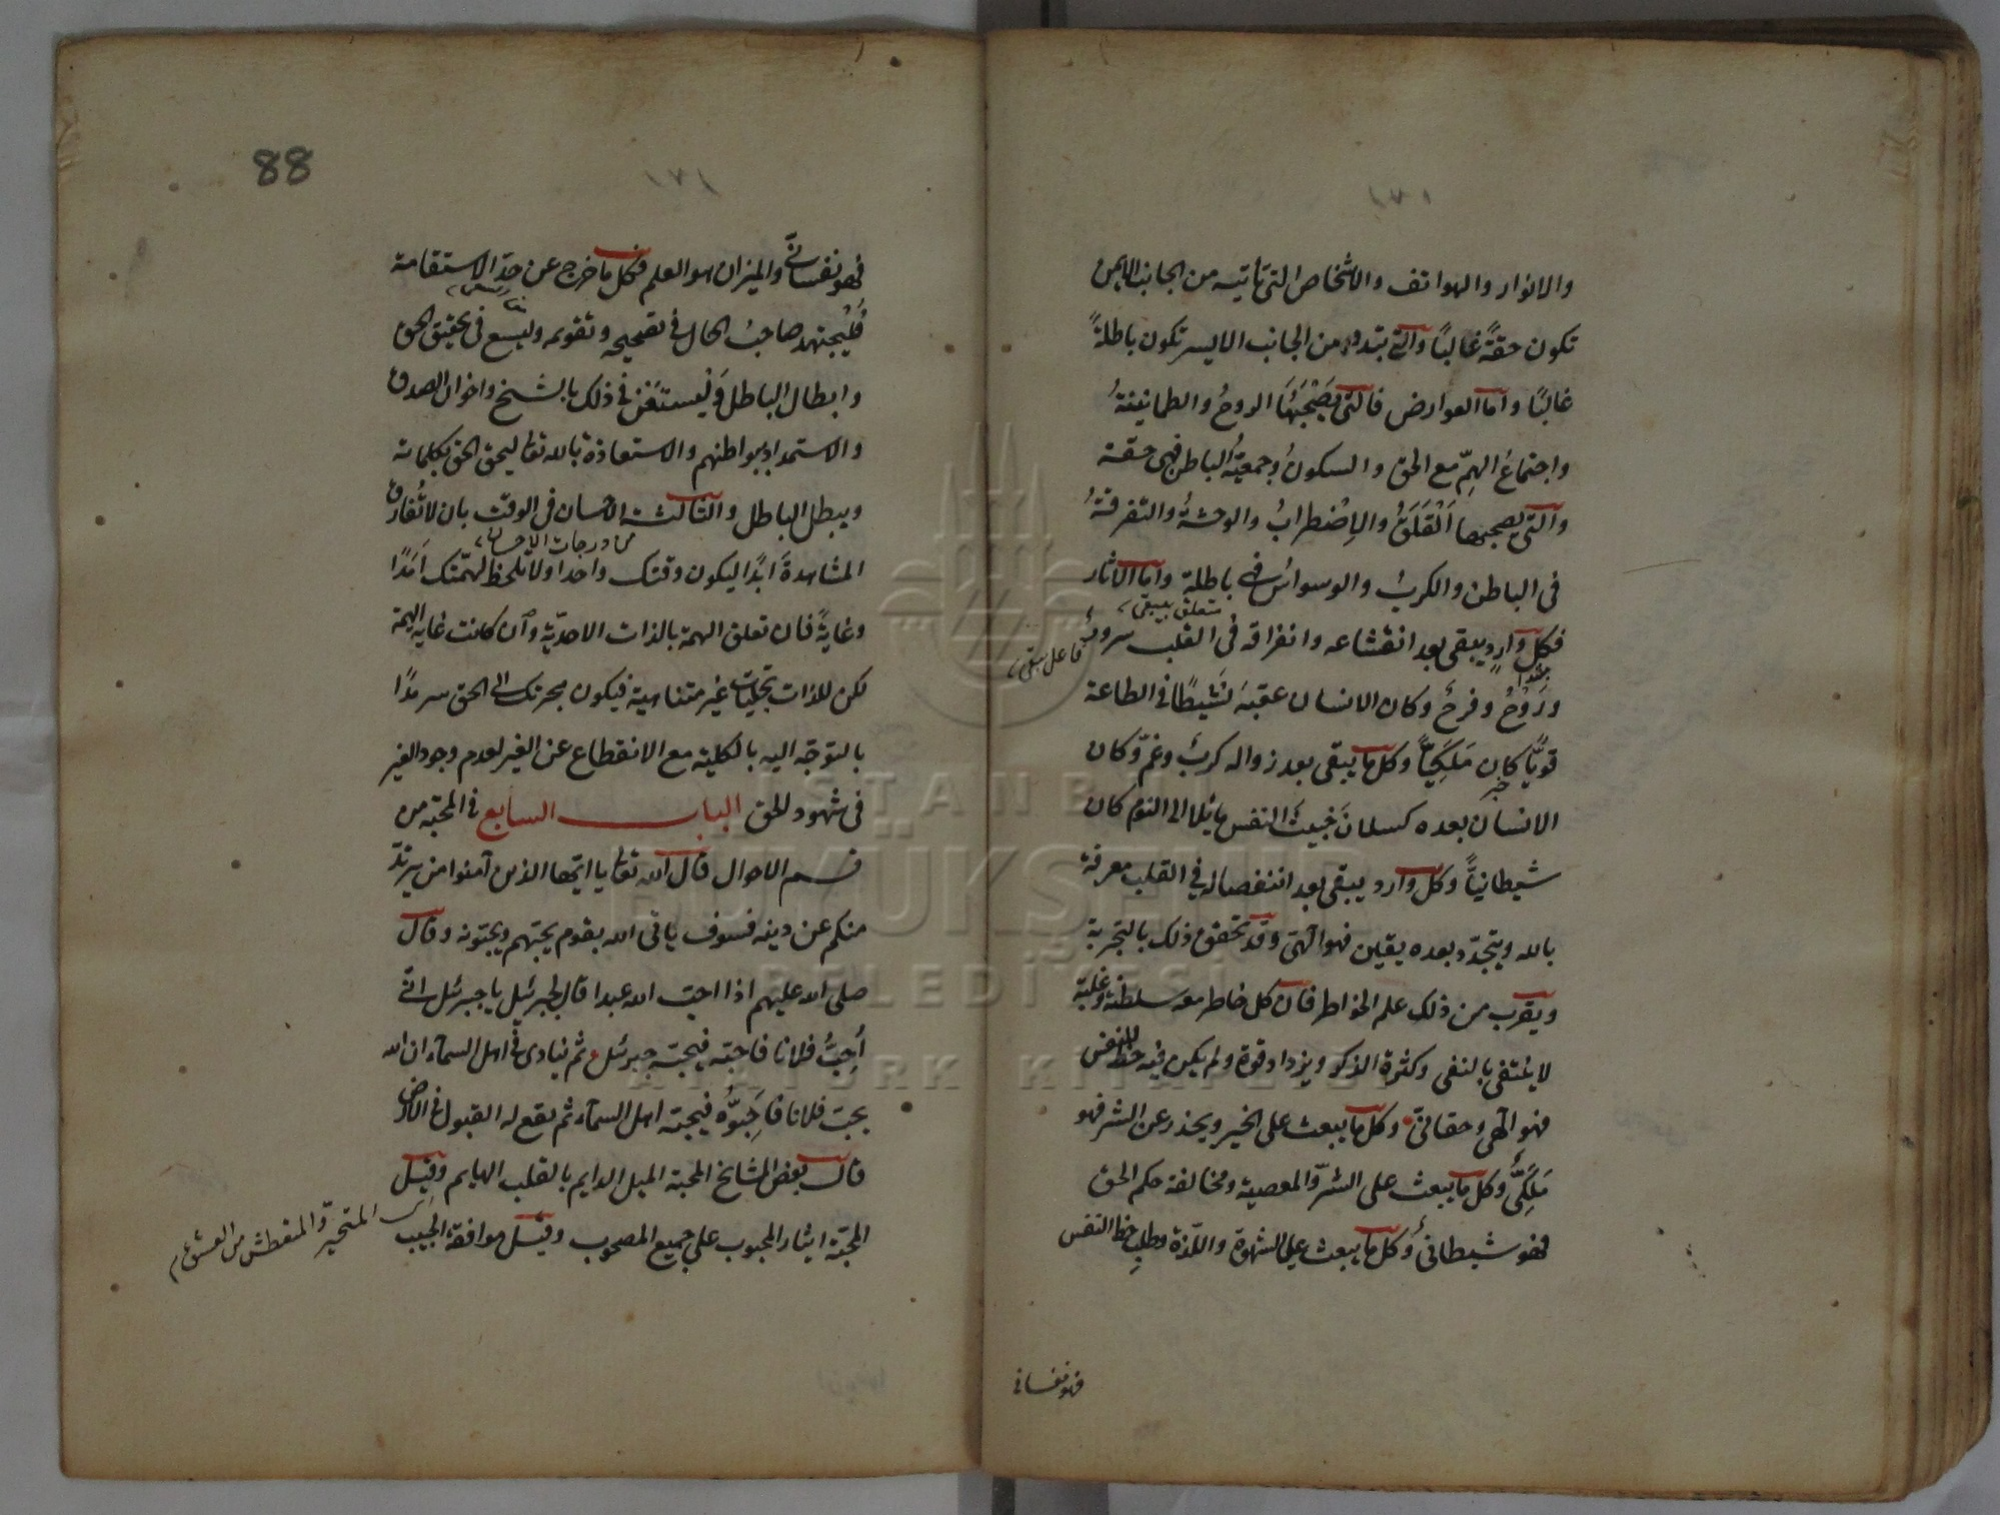 ١٧١
والانوار والهواتف والاشخاص التى تأتيه من الجانب الايمن
تكون حقةً غالبًا والتى تبدو من الجانب الايسر تكون باطلةً
غالبًا واما العوارض فالتى يَصْحَبُهَا الروحُ والطمانينةُ
واجتماعُ الهمِّ مع الحق والسكونُ وجمعيّةُ الباطن فهى حقة
والتى يصحبها اَلْقَلَقُ والاِضْطرابُ والوحشةُ والتفرقةُ
فى الباطن والكربُ والوسواسُ فهى باطلة واما الاثار
متعلق بيبقى
فكل وارد يبقى بعد انقشاعه وانفراقه فى القلب سرورٌ
فاعل يبقى
ورَوْحٌ وفرحٌ وكان الانسان عقبهَ نَشيطًا فى الطاعة
قويًّا كان مَلَكِيّاً وكل ما يبقى بعد زواله كربٌ وغمّ وكان
الانسان بعده كسلانَ خبيثَ النفس مائلا الى النوم كان
شيطانيّاً وكل وارد يبقى بعد انفصاله فى القلب معرفة
بالله ويتجدّد بعده يقين فهو الهىّ وقد تحقق ذلك بالتجربة
ويقرب من ذلك علم الخواطر فان كل خاطر معه سلطنة وغلبة
لا ينتفى بالنفى وكثرة الذكر ويزداد قوة ولم يكن فيه حظ للنفس
فهو الهى وحقانىّ وكل ما يبعث على الخير ويحذر عن الشر فهو
مَلَكِىٌّ وكل ما يبعث على الشرّ والمعصية ومخالفة حكم الحق
فهو شيطانىٌّ وكل ما يبعث على الشهوة واللّذة وطلبِ حظ النفس
فهو نفسانى
88
١٧١
فهو نفسانىّ والميزان هو العلم فكل ما خرج عن حدّ الاستقامة
فَلْيجتهد صاحبُ الحال فى تصحيحه وتقويمه وليسع فى تحقيق الحق
وابطال الباطل وَلْيستعَن فى ذلك بالشيخ واخوان الصدق
والاستمداد ببواطنهم والاستعاذة بالله تعالى ليحق الحق بكلماته
ويبطل الباطل والثالثة الاحسان فى الوقت بان لا تُفارق
من درجات الاحسان
المشاهدةَ ابدًا ليكون وقتك واحدا ولا تلحظ لهمّتك اَمَدًا
وغايةً فان تعلق الهمة بالذات الاحديّة وان كانت غاية الهمة
لكن للذات تجليات غير متناهية فيكون هجرتك الى الحق سرمدًا
بالتوجّه اليه بالكلية مع الانقطاع عن الغير لعدم وجود الغير
فى شهود الحق الباب السابع فى المحبّة من
قسم الاحوال قال الله تعالى يا ايّها الذين آمنوا من يرتدّ
منكم عن دينه فسوف ياتى الله بقوم يحبّهم ويحبّونه وقال
صلى الله عليهم اذا احبّ الله عبدا قال لجبرئيل يا جبرئيل انّى
اُحِبُّ فلانا فاحبّه فيحبّه جبرئيل ثم ينادى فى اهل السماء ان الله
يحبّ فلانا فاَحِبُّوُه فيحبّه اهل السماء ثم يقع له القبول فى الارض
قال بعض المشايخ المحبّة الميل الدايم بالقلب الهايم وقيل
المتحير والمتعطش من العشق
المحبّة ايثار المحبوب على جميع المصحوب وقيل موافقة الحبيب